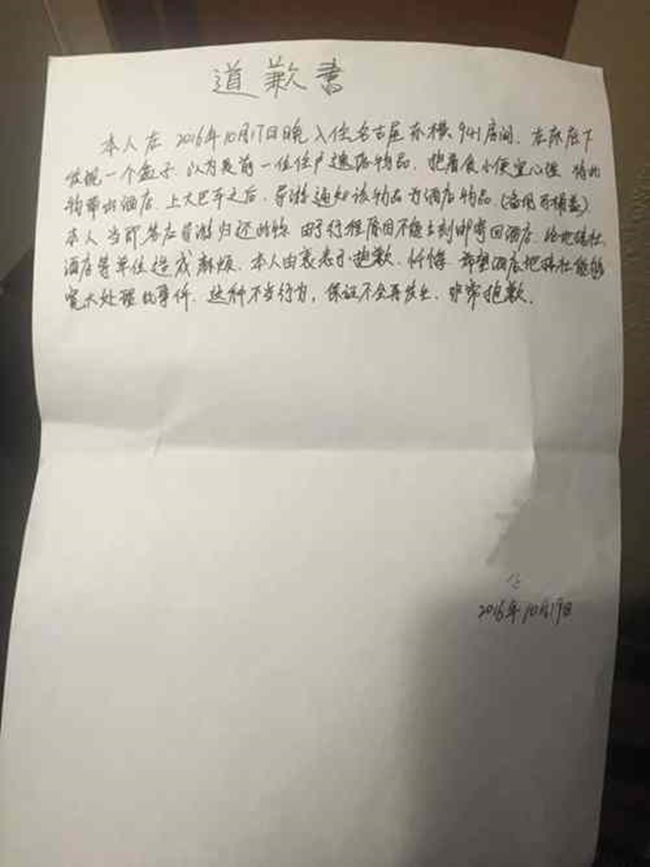 道歉書
本人在2016年10月17日晚入住名古屋东横941房间，在床底下
发现一个盒子，以为是前一位住户遗落物品，抱着贪小便宜心理，将此
物带出酒店，上大巴车之后，导游通知该物品为酒店物品（备用马桶盖）
本人当即答应导游归还此物，由于行程原因不能立刻邮寄回酒店，给地接社，
酒店等单位造成麻烦，本人由衷表示抱歉，忏悔，希望酒店地接社能够
宽大处理此事件，这种不当行为，保证不会再发生，非常抱歉。
2016年10月19日